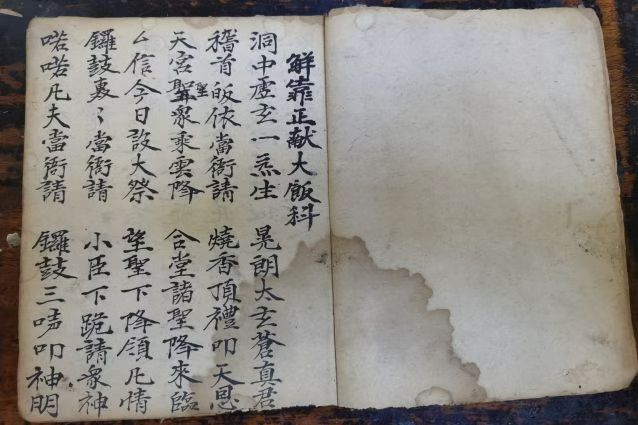 觧靠正献大飯科
洞中虛玄一炁生 晃朗太玄蒼真君
稽首皈依當衙請 燒香頂禮叩天恩
天宮聖眾乘雲降 合堂諸聖降來臨
厶信今日設大祭 望聖下降領凡情
鑼鼓裏〻當衙請 小臣下跪請眾神
喏喏凡夫當衙請 鑼鼓三叩神明